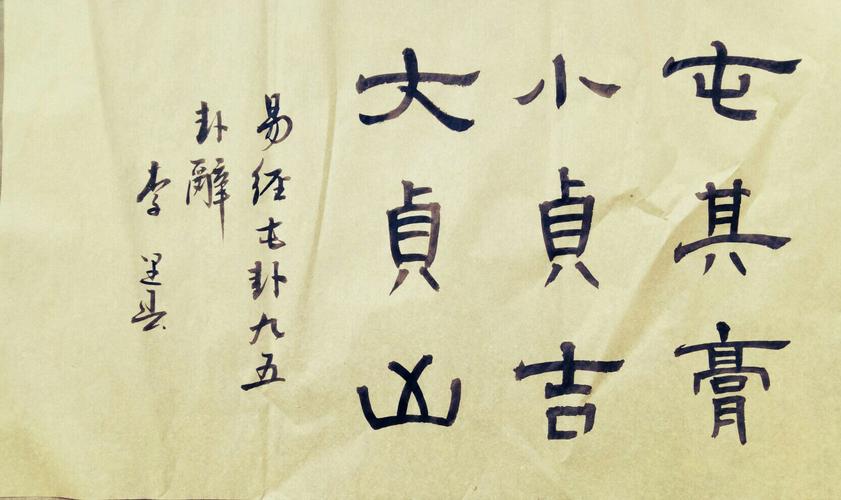 屯其膏
小貞吉
大貞凶
易经屯卦九五
卦辭
李